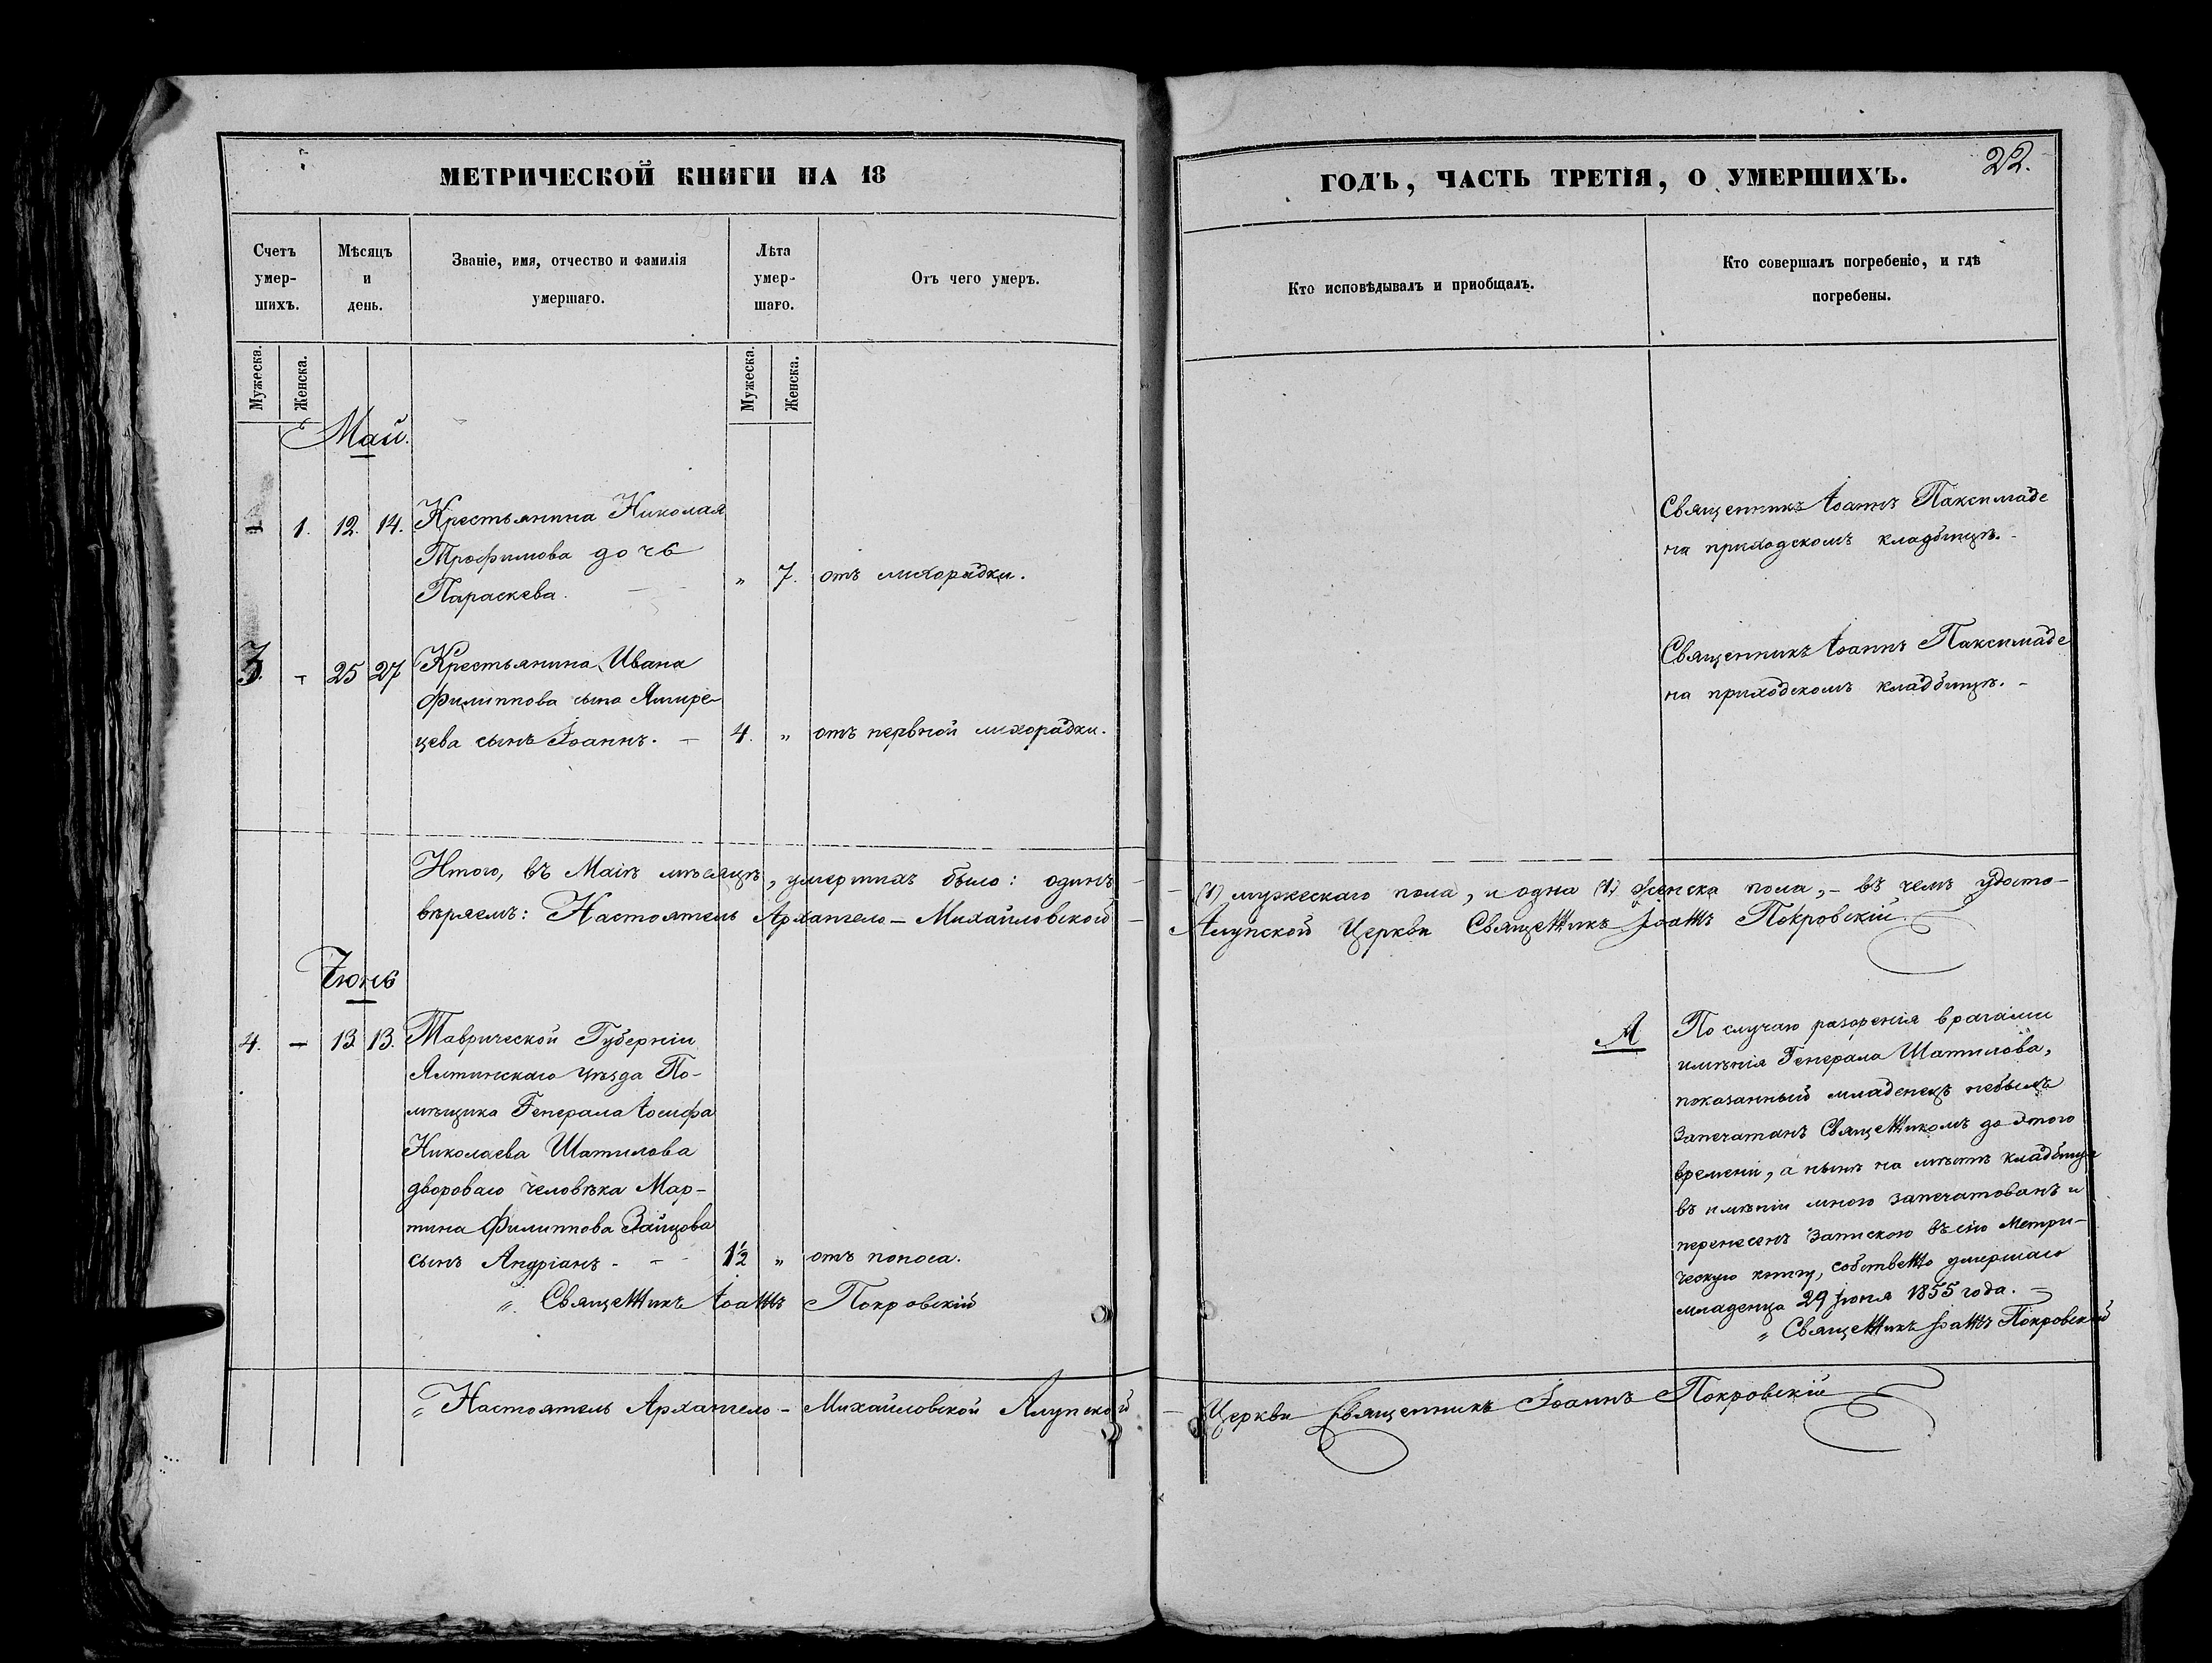 МЕТРИЧЕСКОЙ КНИГИ НА 18
ГОДЪ, ЧАСТЬ ТРЕТІЯ, О УМЕРШИХЪ.
22.
Счетъ
умер-
шихъ.
Мѣсяцъ
и
день.
Званіе, имя, отчество и фамилія
умершаго.
Лѣта
умер-
шаго.
Отъ чего умеръ.
Кто исповѣдывалъ и пріобщалъ.
Кто совершалъ погребеніе, и гдѣ
погребены.
Мужеска.
Женска.
Мужеска.
Женска.
Май.
1. 12. 14. Крестьянина Николая
Трофимова дочь
Параскева. „ 7. отъ лихорадки.
Священникъ Іоаннъ Паксимаде
на приходскомъ кладбищѣ. -
3. - 25 27 Крестьянина Ивана
Филиппова сына Ямпре-
цева сынъ Іоаннъ. - 4. „ отъ нервной лихорадки.
Священникъ Іоаннъ Паксимаде
на приходскомъ кладбищѣ. -
Итого, въ Маіѣ мѣсяцѣ, умершихъ было: одинъ - (1) мужескаго пола, и одна (1) женска пола, - въ чемъ удосто-
вѣряемъ: Настоятель Архангело-Михайловской - Алупской Церкви Священникъ Іоаннъ Покровскій
Іюнь
4. - 13. 13. Таврической Губерніи
Ялтинскаго уѣзда По-
мѣщика Генерала Іосифа
Николаева Шатилова
двороваго человѣка Мар-
тина Филиппова Зайцова
сынъ Андріанъ. - - 1½ „ отъ поноса.
„ Священникъ Іоаннъ Покровскій
А По случаю разоренія врагами
имѣнія Генерала Шатилова,
показанный младенецъ небылъ
запечатанъ Священникомъ до этого
времени, а нынѣ на мѣстѣ кладбища
въ имѣніи мною запечатованъ и
перенесенъ запискою въ сію Метри-
ческую книгу, собственно умершаго
младенца 29 іюня 1855 года. -
„ Священникъ Іоаннъ Покровскій
„ Настоятель Архангело-Михайловской Алупской - Церкви Священникъ Іоаннъ Покровскій